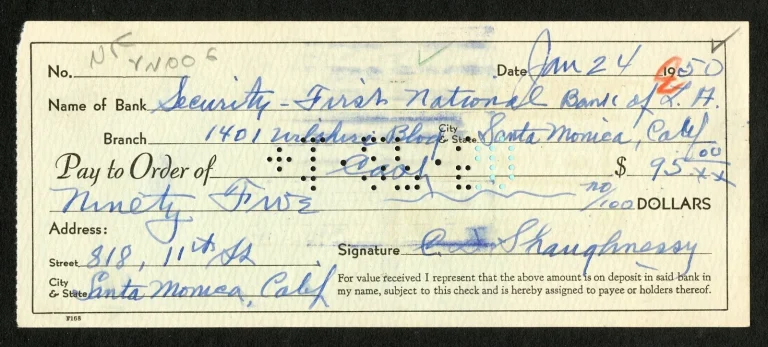 No. NF
Date Jan 24 1950
Name of Bank Security - First National Bank of L. A.
Branch 1401 Wilshire Blvd City & State Santa Monica, Calif
Pay to Order of Cash $ 95 00/xx
Ninety Five no/100 DOLLARS
Address:
Street 818, 11th St. Signature C. S. Shaughnessy
City & State Santa Monica, Calif
For value received I represent that the above amount is on deposit in said bank in
my name, subject to this check and is hereby assigned to payee or holders thereof.
F168